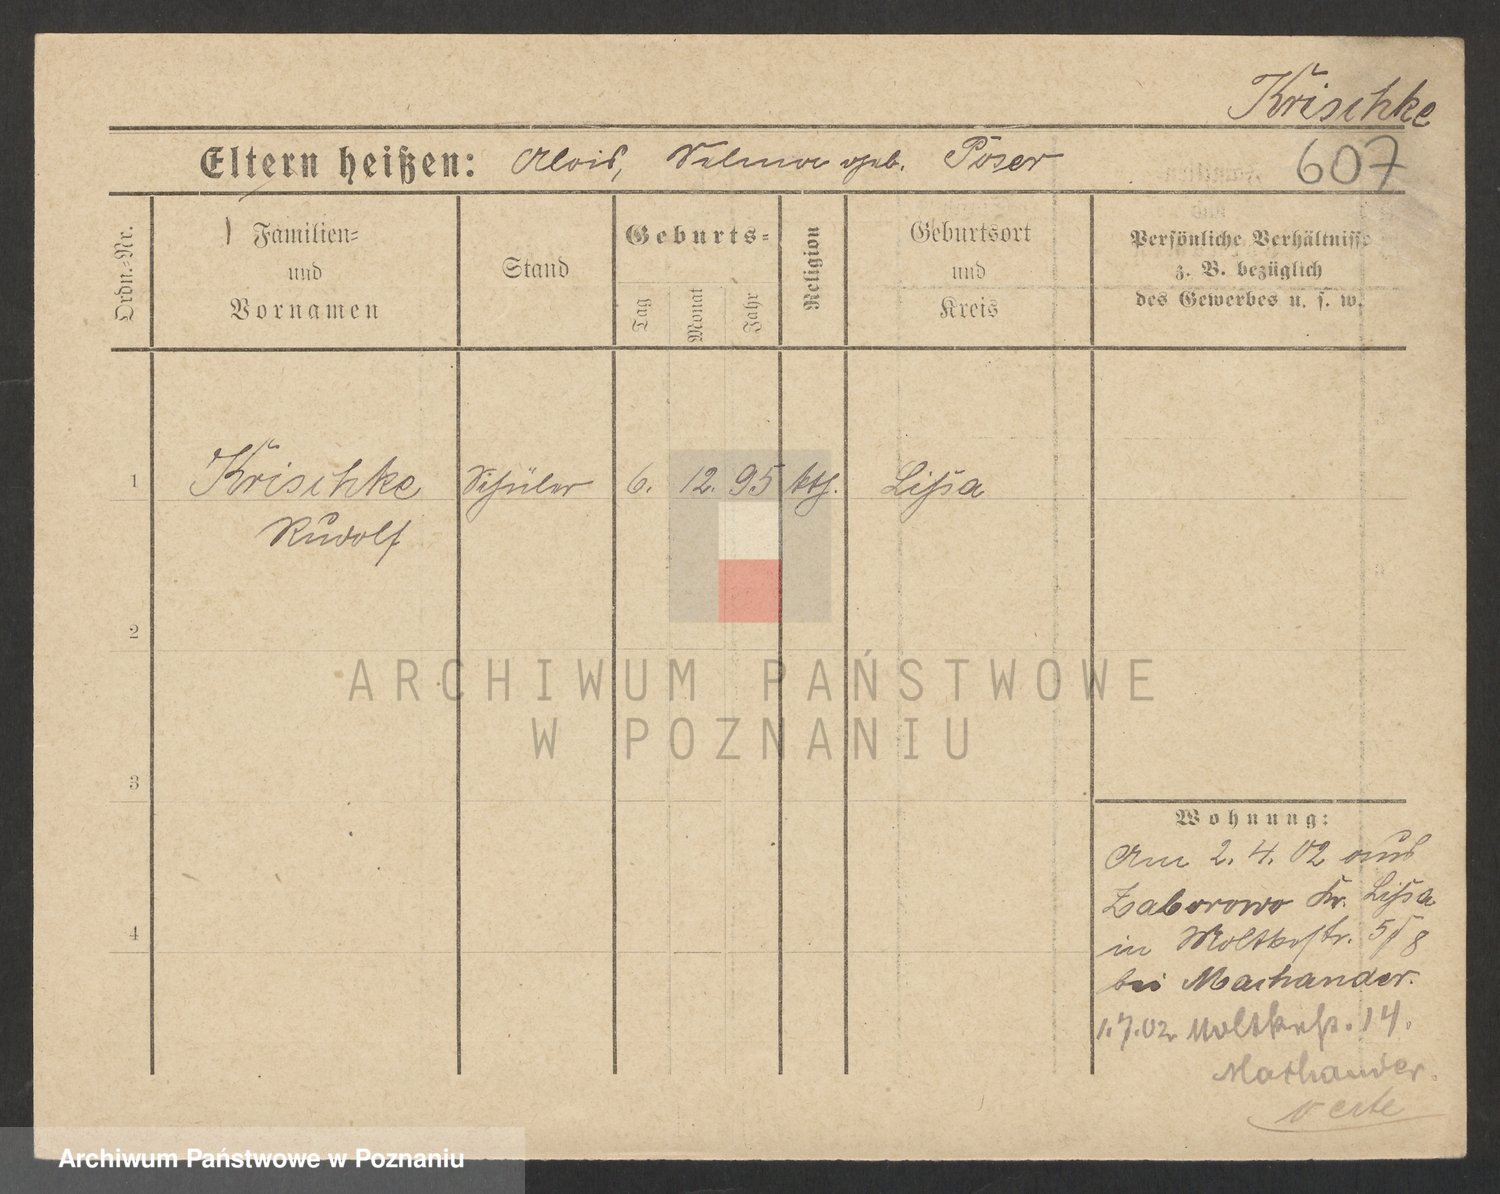 Krischke
607
Eltern heißen: Alois, Selma geb. Poser
Ordn.-Nr.
Familien=
und
Vornamen
Stand
Geburts=
Tag
Monat
Jahr
Religion
Geburtsort
und
Kreis
Persönliche Verhältnisse
z. B. bezüglich
des Gewerbes u. s. w.
1 Krischke Schüler 6. 12. 95 kth. Lissa
Rudolf
2
3
4
ARCHIWUM PAŃSTWOWE
W POZNANIU
Wohnung:
Am 2. 4. 02 aus
Zaborowo Kr. Lissa
in Moltkestr.
bei Machander.
1.7.02 Moltkestr. 14.
Machander.
verte
Archiwum Państwowe w Poznaniu